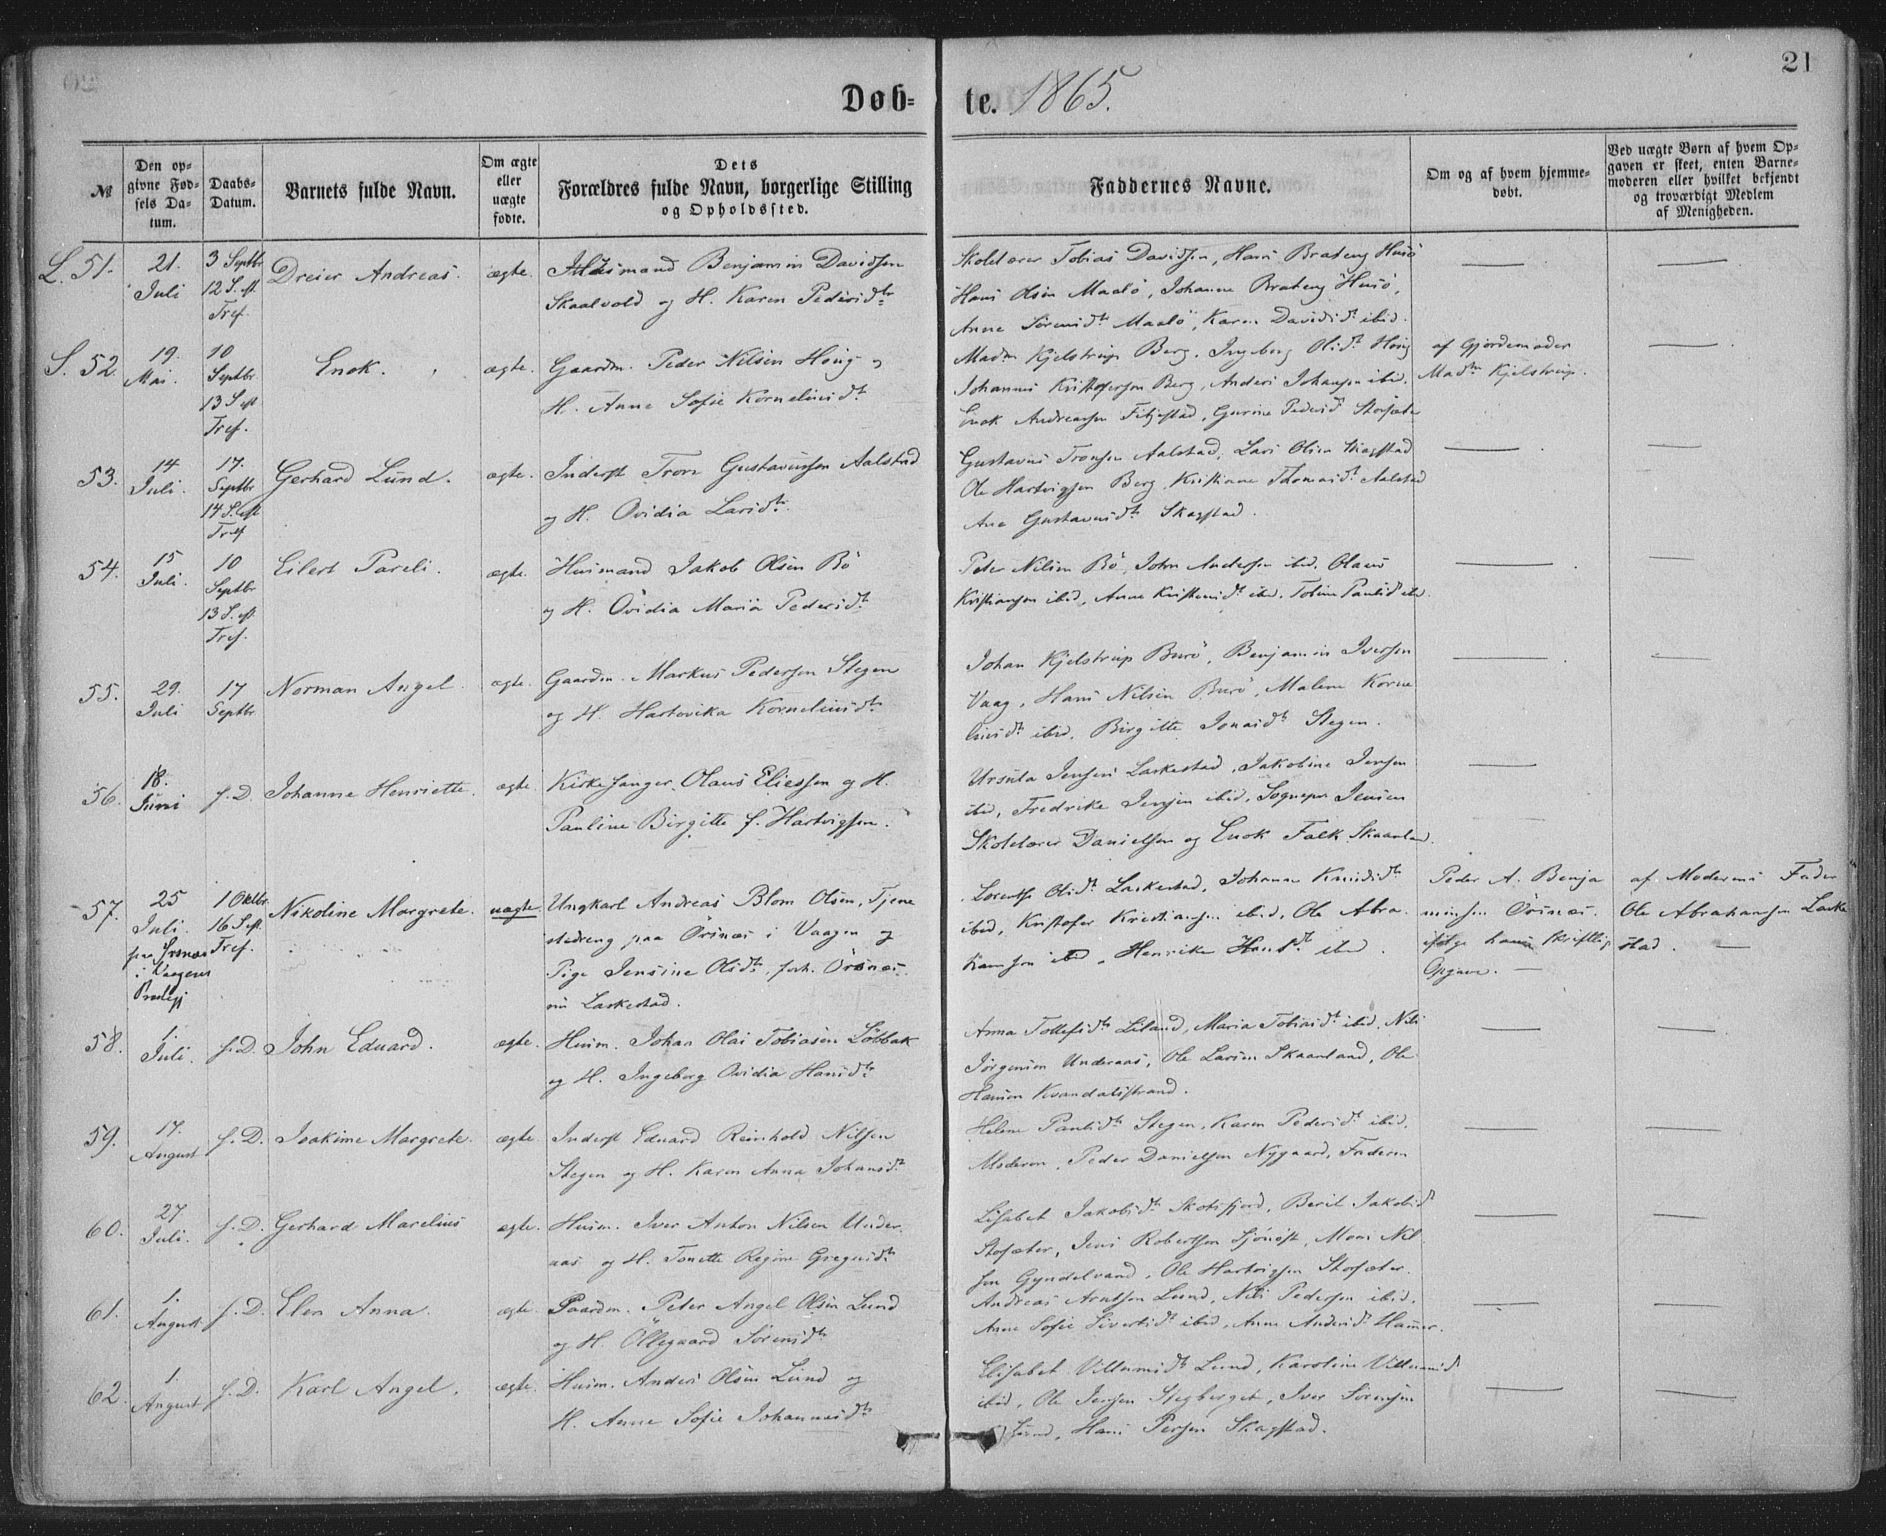 21
Døb= te. 1865.
№
Den op-
givne Fød-
sels Da-
tum.
Daabs-
Datum.
Barnets fulde Navn.
Om ægte
eller
uægte
fødte.
Dets
Forældres fulde Navn, borgerlige Stilling
og Opholdssted.
Faddernes Navne.
Om og af hvem hjemme-
døbt.
Ved uægte Børn af hvem Op-
gaven er skeet, enten Barne-
moderen eller hvilket bekjendt
og troværdigt Medlem
af Menigheden.
L. 51.
21.
Juli
3 Septbr
12 S. eft.
Tref.
Dreier Andreas.
ægte.
Husmand Benjamin Davidsen
Skaalvold og H. Karen Pedersdtr
Skolelærer Tobias Davidsen, Hans Brateng Husö
Hans Olsen Maalö, Johanne Brateng Husö,
Anne Sørensdtr Maalö, Karen Davidsdtr ibid.
S. 52.
19.
Mai.
10
Septbr
13 S. eft
Tref.
Enok.
ægte.
Gaardm. Peder Nilsen Høug og
H. Anne Sofie Korneliusdtr
Madm Kjelstrup Berg, Ingeborg Olsdtr Høug
Johannes Kristofersen Berg, Anders Johansen ibid.
Enok Andreassen Fikjestad, Gurine Pedersdtr Storsæter
af Gjordemoder
Madm Kjelstrup.
53.
14
Juli.
17.
Septbr
14 S. eft
Tref
Gerhard Lund.
ægte.
Inderst Tron Gustavussen Aalstad
og H. Ovidia Larsdtr.
Gustavus Tronsen Aalstad, Lars Olsen Skagstad
Ole Hartvigsen Berg, Kristiane Thomasdtr Aalstad
Ane Gustavusdtr Skagstad.
54.
15
Juli.
10
Septbr
13 S. eft.
Tref.
Eilert Pareli.
ægte.
Husmand Jakob Olsen Bö
og H. Ovidia Maria Pedersdtr
Peter Nilsen Bö, John Andersen ibid. Olaus
Kristiansen ibid, Anne Kristensdtr ibid. Tobine Paulsdtr ibd.
55.
29.
Juli
17
Septbr
Norman Angel.
ægte.
Gaardm. Markus Pedersen Stegen
og H. Hartvika Korneliusdtr
Johan Kjelstrup Burö, Benjamin Iversen
Vaag, Hans Nilsen Burö, Malene Korne
liusdtr ibid. Birgitte Jonasdtr Stegen.
56.
18.
Juni
s. D.
Johanne Henriette.
ægte.
Kirkesanger Olaus Eliessen og H.
Pauline Birgitte f. Hartvigsen.
Ursula Jensen Laskestad, Jakobine Jensen
ibid, Fredrike Jensen ibid, Sognepr Jensen
Skolelærer Danielsen og Enok Falk Skaanland.
57.
25
Juli.
paa Örsnes
i Vaagens
Prstegj
1 Oktbr.
16 S. eft.
Tref.
Nikoline Margrete.
uægte
Ungkarl Andreas Blom Olsen, Tjene
stedreng paa Örsnes i Vaagen og
Pige Jensine Olsdtr, forh. Örsnes
nu Laskestad.
Lorentse Olsdtr Laskestad, Johanna Knudsdtr
ibid, Kristofer Kristiansen ibid, Ole Abra
hamsen ibid, Henrike Hansdtr ibid.
Peder A. Benja
minsen Örsnes.
ifølge hans skriftlig
Opgave.
af Moderens Fader
Ole Abrahamsen Laske
stad.
58.
1.
Juli.
s. D.
John Eduard.
ægte.
Husm. Johan Olai Tobiasen Löbbak
og H. Ingeborg Ovidia Hansdtr
Anna Tollefsdtr Leiland, Maria Tobiasdtr ibid, Nils
Jørgensen Underaas, Ole Larsen Skaanland, Ole
Hansen Kvandalsstrand.
59.
17.
August
s. D.
Joakime Margrete.
ægte.
Inderst Eduard Reinhold Nilsen
Stegen og H. Karen Anna Johansdtr
Helene Paulsdtr Stegen, Karen Pedersdtr ibid,
Moderen, Peder Danielsen Nygaard, Faderen
60.
27
Juli.
s. D.
Gerhard Marelius
ægte.
Husm. Iver Anton Nilsen Under
aas og H. Tonette Regine Gregusdtr
Lisabet Jakobsdtr Skotsfjord, Beril Jakobsd
Storsæter, Jens Robertsen Sjönöst, Mons Nil
sen Gyndelvand, Ole Hartvigsen Storsæter.
61.
1.
August
s. D.
Elen Anna.
ægte.
Gaardm. Peter Angel Olsen Lund
og H. Öllegaard Sørensdtr
Andreas Arntsen Lund, Nils Pedersen ibid.
Anne Sofie Sivertsdtr ibid, Anne Andersdtr Hamer.
62.
1.
August
s. D.
Karl Angel.
ægte.
Husm. Anders Olsen Lund og
H. Anne Sofie Johannesdtr
Elisabet Villumsdtr Lund, Karoline Villumsd
ibid, Ole Jensen Stegberget, Iver Sørensen
Lund, Hans Persen Skagstad.